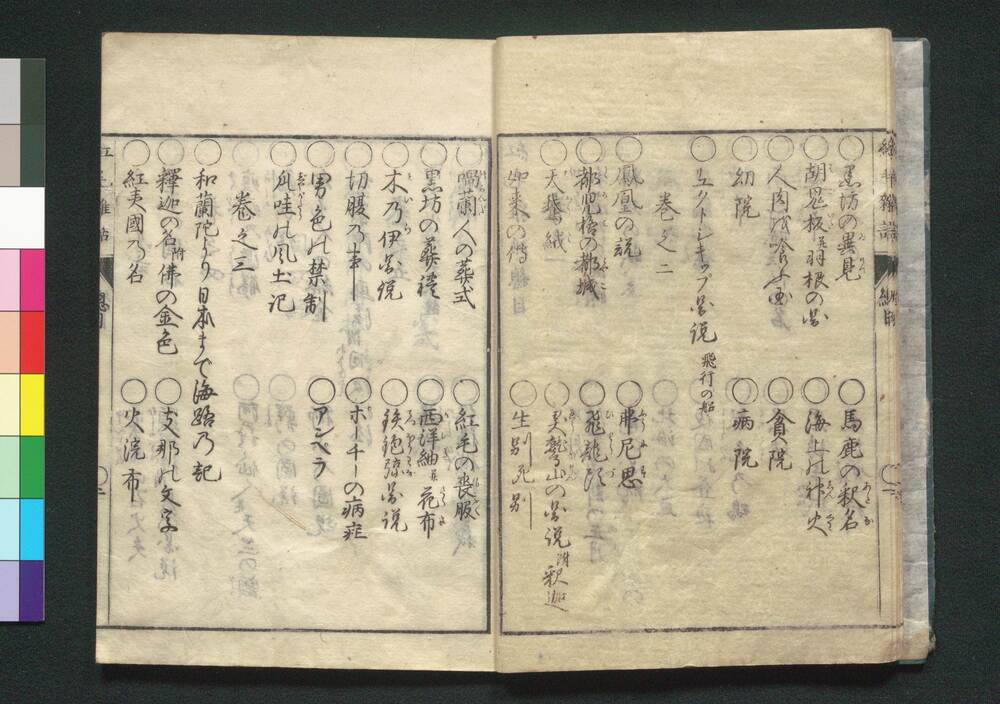 黒坊の異見
馬鹿の釈名
胡鬼板并羽根の図
海上の神火
人肉を喰ふ画
貧院
幼院
病院
リュクトシキップ図説 飛行の船
巻之二
鳳凰の説
弗尼思
都児格の都城
飛龍
天鵞絨
霊鷲山の図説 附釈迦
如来の傳
生別死別
喎蘭人の葬式
紅毛の喪服
黒坊の葬禮
西洋紬并花布
木乃伊図説
鉄砲弾図説
切腹の事
ホーチーの病症
男色の禁制
アンペラ
瓜哇の風土記
巻之三
和蘭陀より日本まで海路乃記
釋迦の名附佛の金色
支那の文字
紅夷國乃名
火浣布